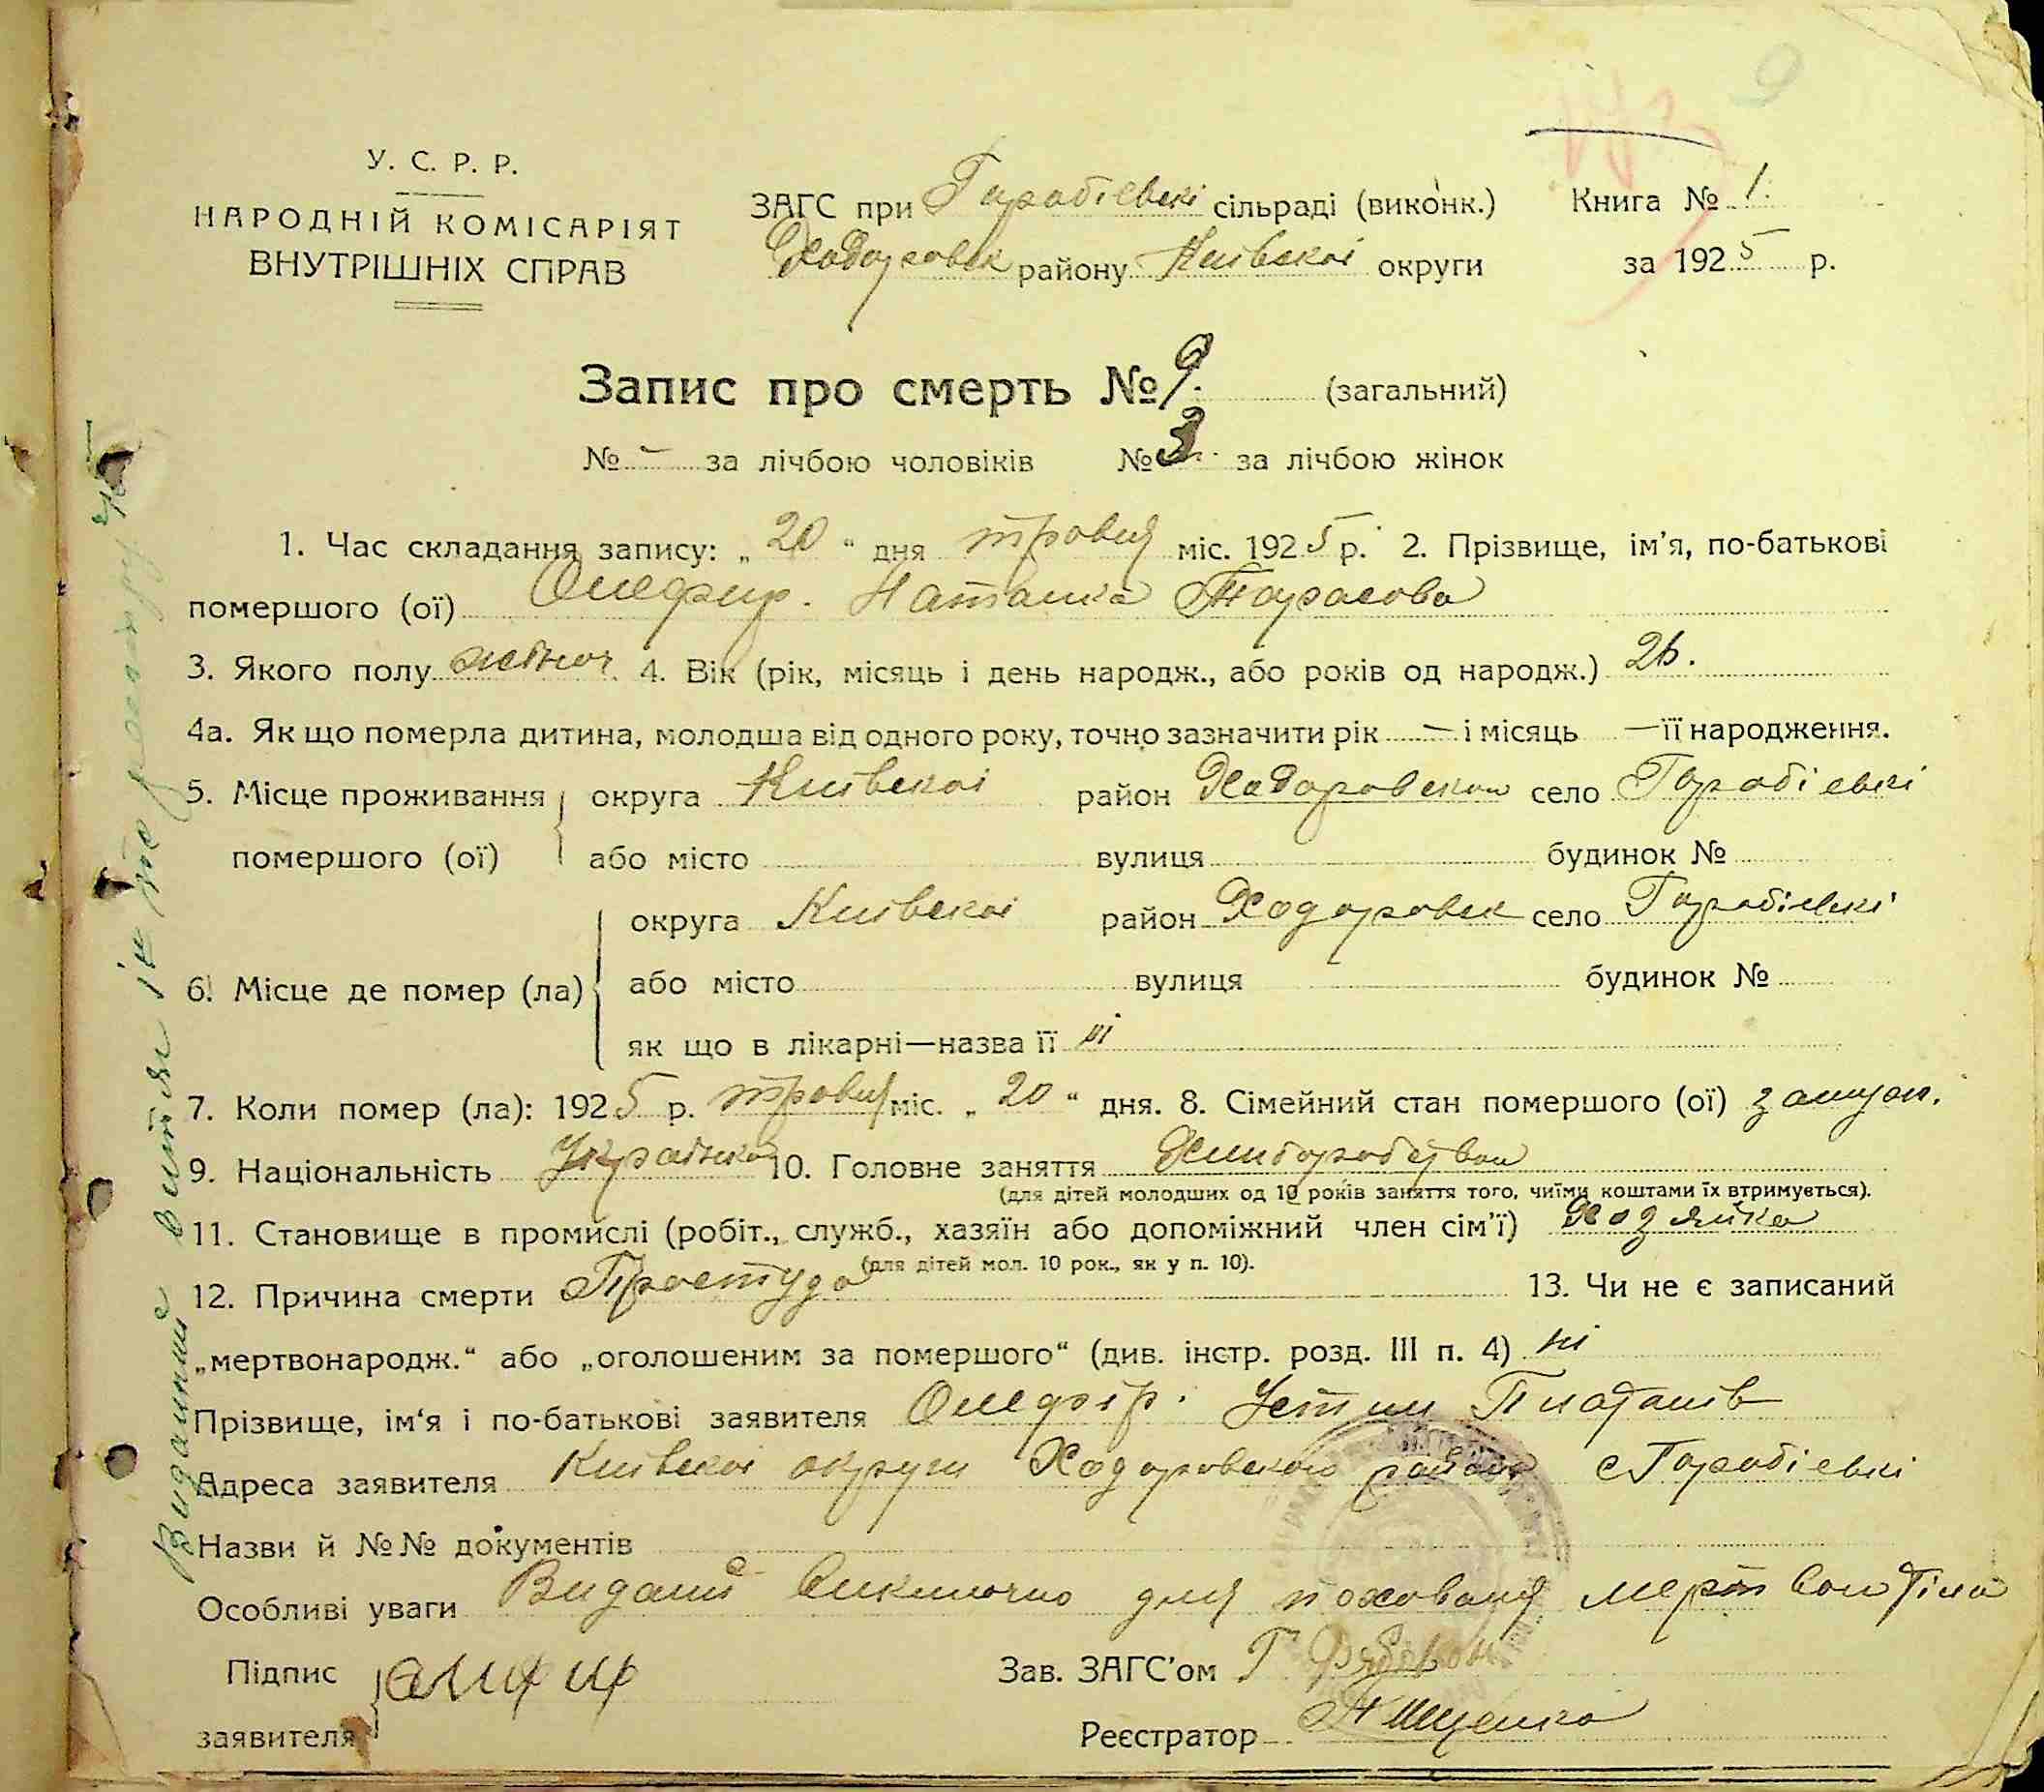 У. С. Р. Р.
НАРОДНІЙ КОМІСАРІЯТ
ВНУТРІШНІХ СПРАВ
ЗАГС при Горобіевкі сільраді (виконк.)
Ходоровск району Київскоі округи
Книга № 1.
за 1925 р.
Запис про смерть № 9. (загальний)
№ – за лічбою чоловіків № 3 за лічбою жінок
1. Час складання запису: „20“ дня тровня міс. 1925 р. 2. Прізвище, ім’я, по-батькові
помершого (ої) Олефир. Наталка Тарасова
3. Якого полу жіноч. 4. Вік (рік, місяць і день народж., або років од народж.) 26.
4а. Як що померла дитина, молодша від одного року, точно зазначити рік — і місяць — її народження.
5. Місце проживання округа Київскоі район Ходоровском село Горобіевкі
помершого (ої) або місто вулиця будинок №
округа Київскоі район Ходоровск село Горобіевкі
6. Місце де помер (ла) або місто вулиця будинок №
як що в лікарні—назва її ні
7. Коли помер (ла): 1925 р. тровня міс. „20“ дня. 8. Сімейний стан помершого (ої) замуж.
9. Національність Украінка 10. Головне заняття
(для дітей молодших од 10 років заняття того, чиїми коштами їх втримується).
11. Становище в промислі (робіт., служб., хазяїн або допоміжний член сім’ї) Хозяйка
(для дітей мол. 10 рок., як у п. 10).
12. Причина смерти Простуда 13. Чи не є записаний
„мертвонародж.“ або „оголошеним за помершого“ (див. інстр. розд. III п. 4) ні
Прізвище, ім‘я і по-батькові заявителя Олефір. Устин
Адреса заявителя Київскоі округи Ходоровского района с Горобіевкі
Назви й №№ документів
Особливі уваги для
Підпис
заявителя
Зав. ЗАГС’ом Г
Реєстратор